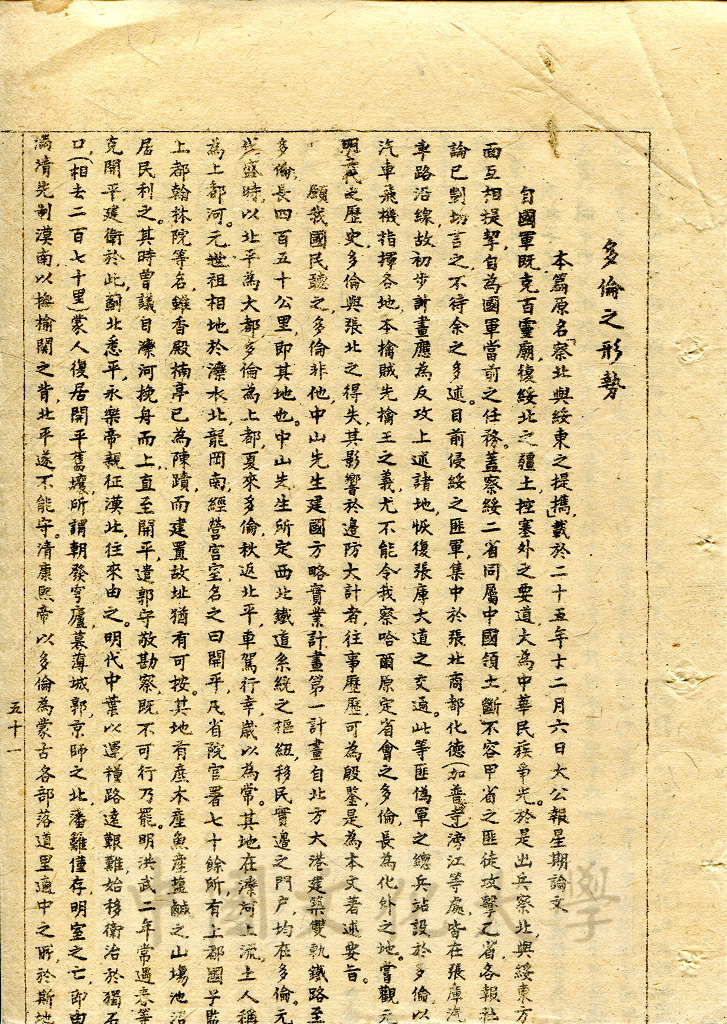 多倫之形勢
本篇原名「察北與綏東之提攜」載於二十五年十二月六日大公報星期論文
自國軍既克百靈廟，復綏北之疆土，控塞外之要道，大為中華民族爭光。於是出兵察北，與綏東方
面互相提挈，自為國軍當前之任務。蓋察綏二省同屬中國領土，斷不容甲省之匪徒攻擊乙省，各報社
論已剴切言之，不待余之多述。目前侵綏之匪軍，集中於張北、商都、化德（加普寺）、滂江等處，皆在張庫汽
車路沿線，故初步計畫應為反攻上述諸地，恢復張庫大道之交通。此等匪偽軍之總兵站設於多倫，以
汽車飛機指揮各地，本擒賊先擒王之義，尤不能令我察哈爾原定省會之多倫，長為化外之地。嘗觀元
明清之歷史，多倫與張北之得失，其影響於邊防大計者，往事歷歷可為殷鑒，是為本文著述要旨。
願我國民聽之，多倫非他，中山先生建國方略實業計畫第一計畫自北方大港建築雙軌鐵路至
多倫，長四百五十公里，即其地也。中山先生所定西北鐵道系統之樞紐，移民實邊之門戶，均在多倫。元
代盛時，以北平為大都，多倫為上都，夏來多倫，秋返北平，車駕行幸，歲以為常。其地在灤河上流，土人稱
為上都河。元世祖相地於灤水北，龍岡南，經營宮室，名之曰開平，凡省院官署七十餘所，有上都國子監
上都翰林院等名，雖香殿楠亭已為陳蹟，而建置故址猶有可按。其地有産木産魚産鹽鹹之山場池沼
居民利之。其時曾議自灤河挽舟而上，直至開平，遣郭守敬勘察，既不可行乃罷。明洪武二年常遇春等
克開平，建衛於此，薊北悉平，永樂帝親征漠北，往來由之。明代中葉以還，糧路遠艱難，始移衛治於獨石
口，（相去二百七十里）蒙人復居開平舊壤，所謂朝發穹廬，暮薄城郭，京師之北，藩籬僅存，明室之亡，即由
滿清先制漠南，以撫榆關之背，北平遂不能守。清康熙帝以多倫為蒙古各部落道里適中之所，於斯地
五十一
中國文化大學